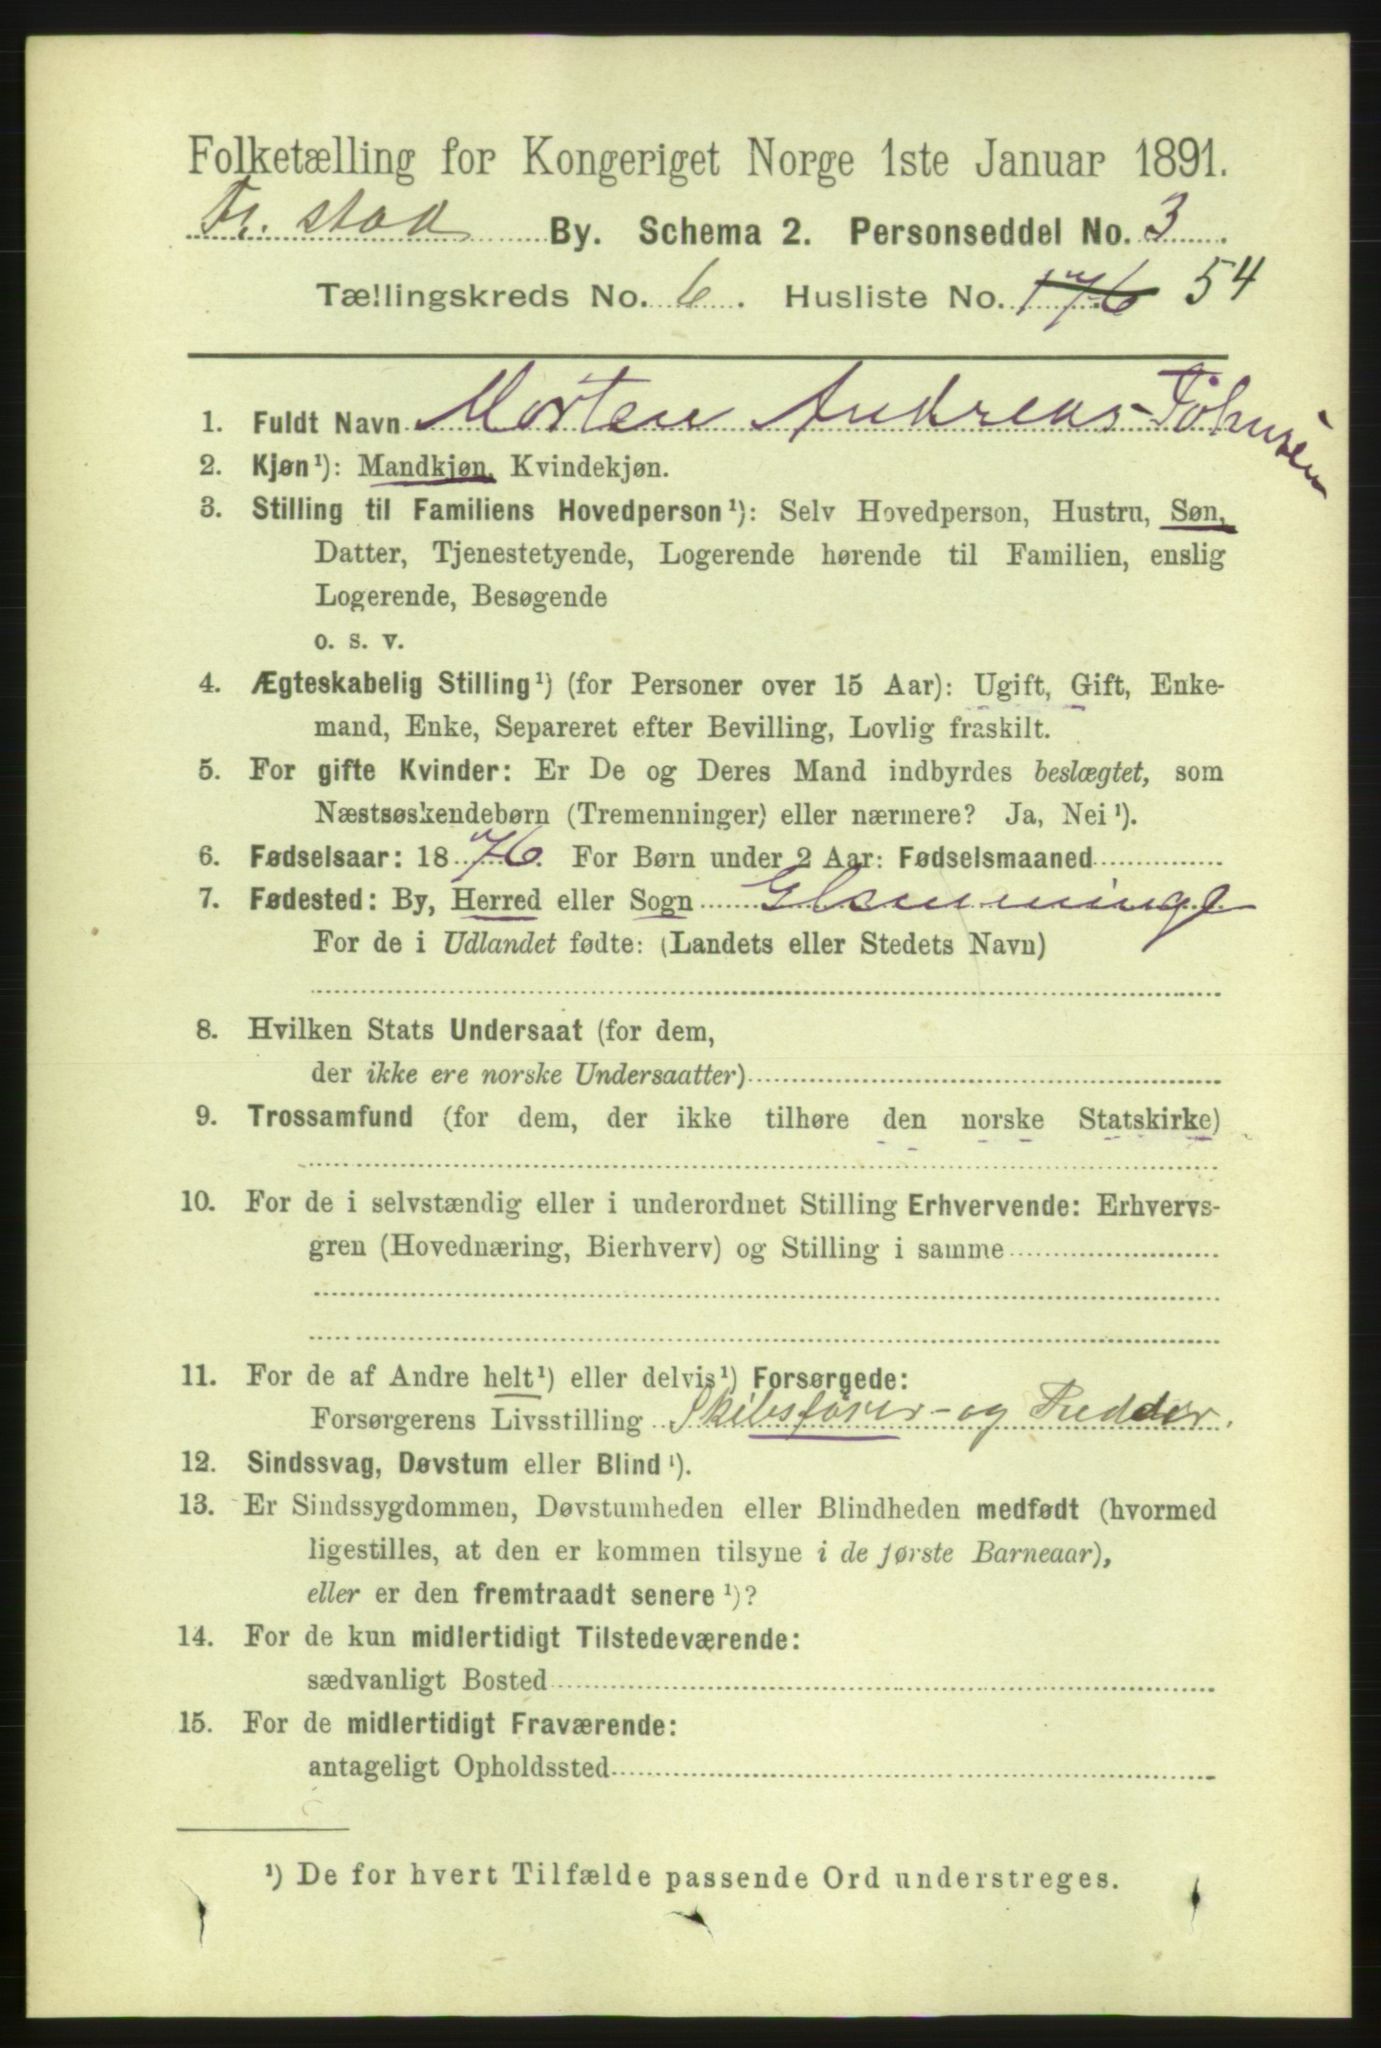 Folketælling for Kongeriget Norge 1ste Januar 1891.
Fr. stad By. Schema 2. Personseddel No. 3
Tællingskreds No. 6. Husliste No. 176 54
1. Fuldt Navn Morten Andreas Johnsen
2. Kjøn¹): Mandkjøn, Kvindekjøn.
3. Stilling til Familiens Hovedperson¹): Selv Hovedperson, Hustru, Søn,
Datter, Tjenestetyende, Logerende hørende til Familien, enslig
Logerende, Besøgende
o. s. v.
4. Ægteskabelig Stilling¹) (for Personer over 15 Aar): Ugift, Gift, Enke-
mand, Enke, Separeret efter Bevilling, Lovlig fraskilt.
5. For gifte Kvinder: Er De og Deres Mand indbyrdes beslægtet, som
Næstsøskendebørn (Tremenninger) eller nærmere? Ja, Nei¹).
6. Fødselsaar: 1876. For Børn under 2 Aar: Fødselsmaaned
7. Fødested: By, Herred eller Sogn Glemminge
For de i Udlandet fødte: (Landets eller Stedets Navn)
8. Hvilken Stats Undersaat (for dem,
der ikke ere norske Undersaatter)
9. Trossamfund (for dem, der ikke tilhøre den norske Statskirke)
10. For de i selvstændig eller i underordnet Stilling Erhvervende: Erhvervs-
gren (Hovednæring, Bierhverv) og Stilling i samme
11. For de af Andre helt¹) eller delvis¹) Forsørgede:
Forsørgerens Livsstilling Skibsfører- og Redder.
12. Sindssvag, Døvstum eller Blind¹).
13. Er Sindssygdommen, Døvstumheden eller Blindheden medfødt (hvormed
ligestilles, at den er kommen tilsyne i de første Barneaar),
eller er den fremtraadt senere¹)?
14. For de kun midlertidigt Tilstedeværende:
sædvanligt Bosted
15. For de midlertidigt Fraværende:
antageligt Opholdssted
¹) De for hvert Tilfælde passende Ord understreges.